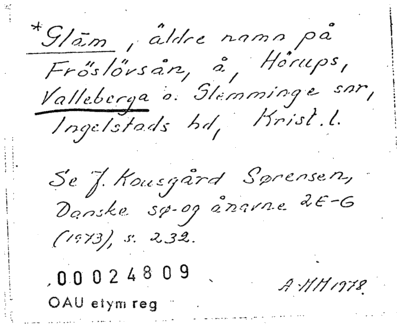 *Glām, äldre namn på
Fröslövsån, å, Hörups,
Valleberga o. Slimminge snr,
Ingelstads hd, Krist. l.
Se J. Kousgård Sørensen,
Danske sø- og ånavne 2E-G
(1973), s. 232.
00024809
A-HH 1978.
OAU etym reg